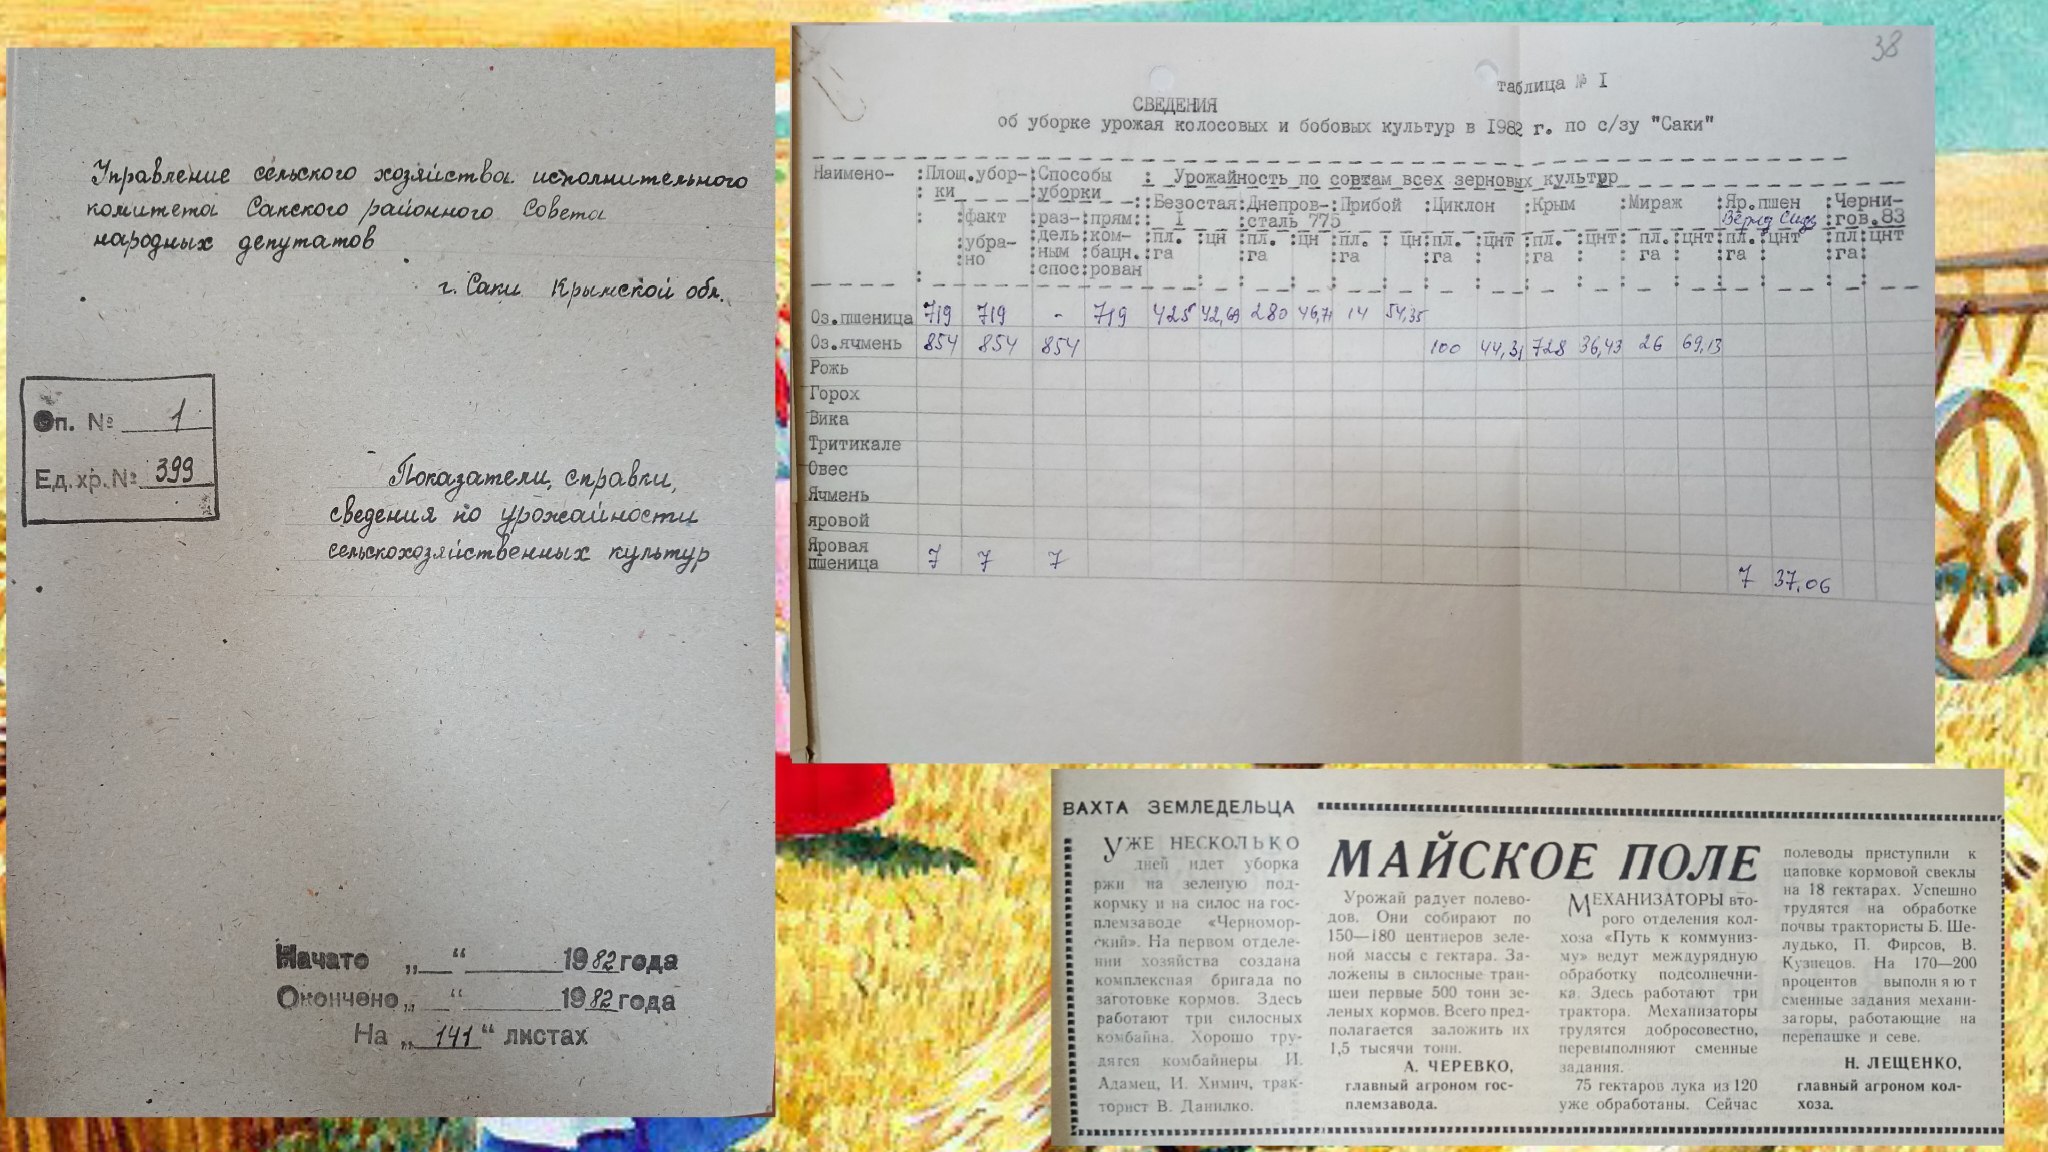 Управление сельского хозяйства исполнительного
комитета Сакского районного Совета
народных депутатов
г. Саки Крымской обл.
Оп. № 1
Ед. хр. № 399
Показатели, справки,
сведения по урожайности
сельскохозяйственных культур
Начато „ “ 1982 года
Окончено „ “ 1982 года
На „141“ листах
38
таблица № I
СВЕДЕНИЯ
об уборке урожая колосовых и бобовых культур в 1982 г. по с/зу "Саки"
Наимено- :Площ.убор-:Способы : Урожайность по сортам всех зерновых культур
: ки :уборки
:Безостая:Днепров-:Прибой :Циклон :Крым :Мираж :Яр.пшен :Черни-
:факт раз-:прям: I :сталь 775 гов.83
:убра- дель:ком- :пл. :цн :пл. :цн пл. : цн :пл. :цнт :пл. :цнт пл. :цнт :пл. :цнт пл :цнт
:но ным :бацн. га га га га га га га га
спос:рован
Оз.пшеница 719 719 - 719 425 42,69 280 46,71 14 54,35
Оз.ячмень 854 854 854 100 44,31 728 36,43 26 69,13
Рожь
Горох
Вика
Тритикале
Овес
Ячмень
яровой
Яровая
пшеница 7 7 7 7 37,06
ВАХТА ЗЕМЛЕДЕЛЬЦА
МАЙСКОЕ ПОЛЕ
УЖЕ НЕСКОЛЬКО
дней идет уборка
ржи на зеленую под-
кормку и на силос на гос-
племзаводе «Черномор-
ский». На первом отделе-
нии хозяйства создана
комплексная бригада по
заготовке кормов. Здесь
работают три силосных
комбайна. Хорошо тру-
дятся комбайнеры И.
Адамец, И. Химич, трак-
торист В. Данилко.
Урожай радует полево-
дов. Они собирают по
150—180 центнеров зеле-
ной массы с гектара. За-
ложены в силосные тран-
шеи первые 500 тонн зе-
леных кормов. Всего пред-
полагается заложить их
1,5 тысячи тонн.
А. ЧЕРЕВКО,
главный агроном гос-
племзавода.
МЕХАНИЗАТОРЫ вто-
рого отделения кол-
хоза «Путь к коммуниз-
му» ведут междурядную
обработку подсолнечни-
ка. Здесь работают три
трактора. Механизаторы
трудятся добросовестно,
перевыполняют сменные
задания.
75 гектаров лука из 120
уже обработаны. Сейчас
полеводы приступили к
цаповке кормовой свеклы
на 18 гектарах. Успешно
трудятся на обработке
почвы трактористы Б. Ше-
лудько, П. Фирсов, В.
Кузнецов. На 170—200
процентов выполняют
сменные задания механи-
заторы, работающие на
перепашке и севе.
Н. ЛЕЩЕНКО,
главный агроном кол-
хоза.